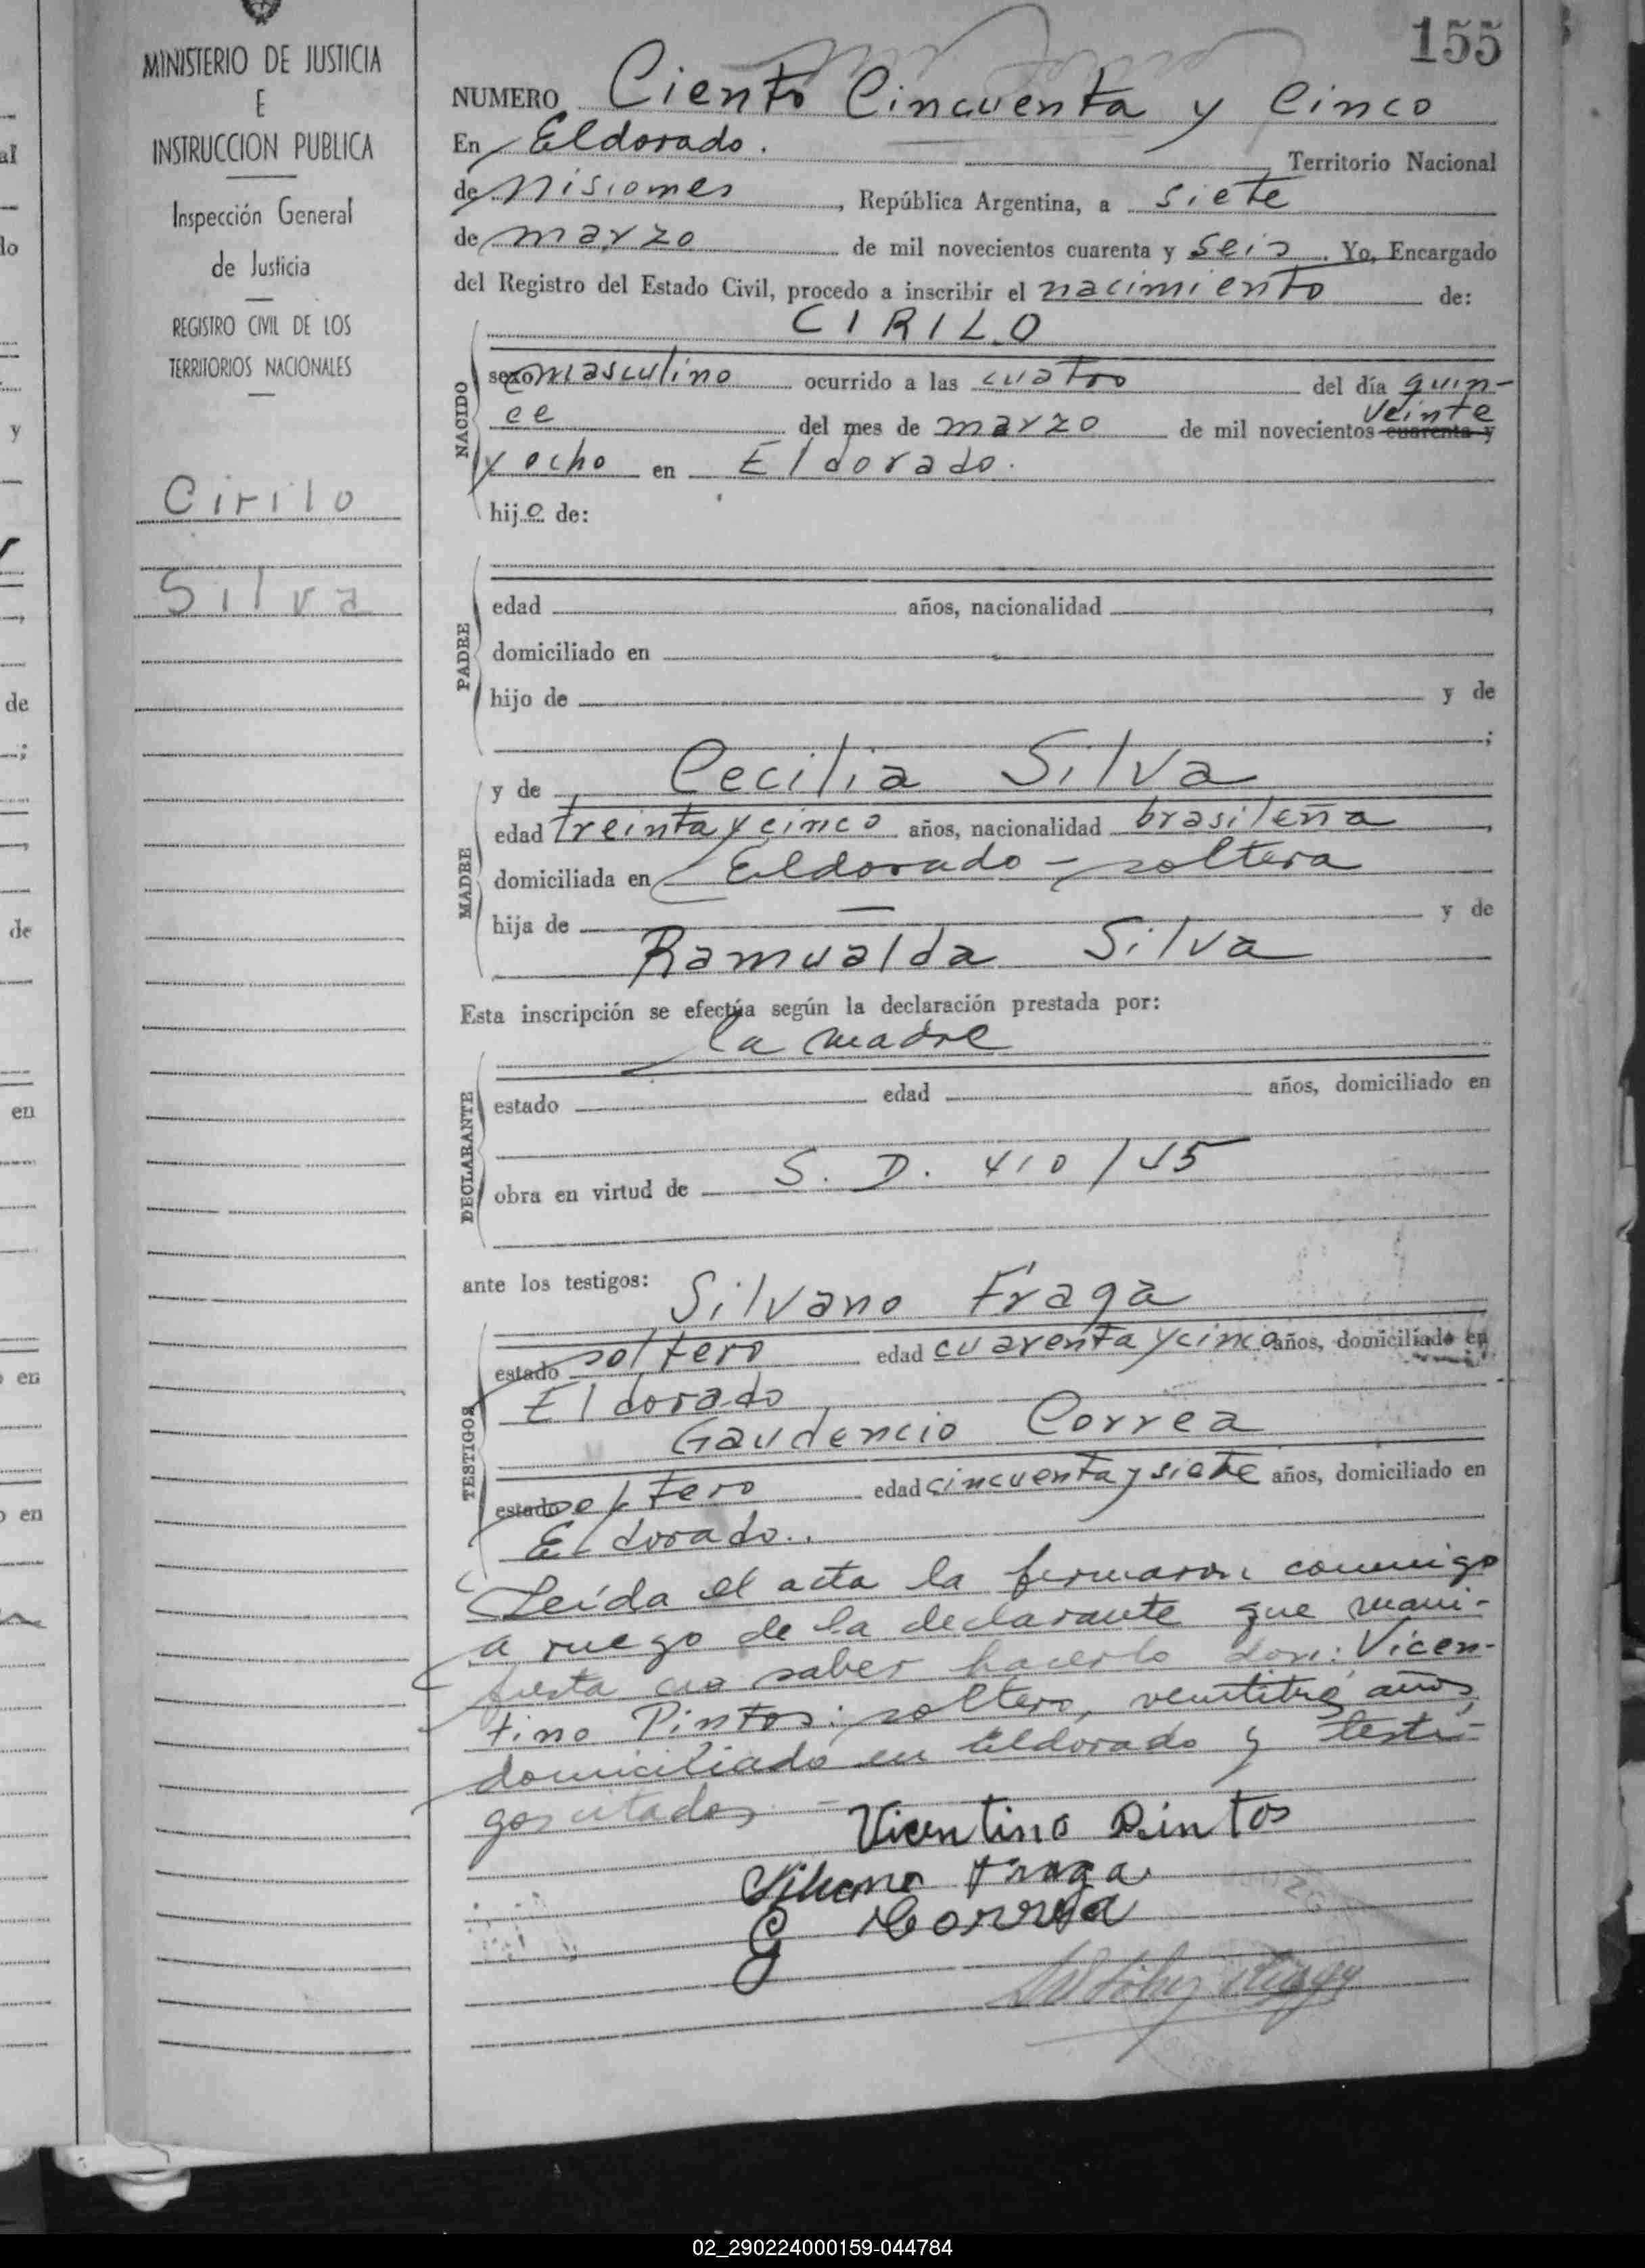 155
MINISTERIO DE JUSTICIA
E
INSTRUCCION PUBLICA
Inspección General
de Justicia
REGISTRO CIVIL DE LOS
TERRITORIOS NACIONALES
Cirilo
Silva
NUMERO Ciento Cincuenta y Cinco
En Eldorado. Territorio Nacional
de Misiones, República Argentina, a siete
de marzo de mil novecientos cuarenta y seis. Yo, Encargado
del Registro del Estado Civil, procedo a inscribir el nacimiento de:
CIRILO
NACIDO
sexo masculino ocurrido a las cuatro del día quin-
ce del mes de marzo de mil novecientos cuarenta y veinte
y ocho en Eldorado.
hijo de:
PADRE
edad años, nacionalidad ,
domiciliado en
hijo de y de
;
MADRE
y de Cecilia Silva
edad treinta y cinco años, nacionalidad brasileña,
domiciliada en Eldorado - soltera
hija de — y de
Ramualda Silva
Esta inscripción se efectúa según la declaración prestada por:
la madre
DECLARANTE
estado edad años, domiciliado en
obra en virtud de S. D. 410/45
ante los testigos: Silvano Fraga
TESTIGOS
estado soltero edad cuarenta y cinco años, domiciliado en
Eldorado
Gaudencio Correa
estado soltero edad cincuenta y siete años, domiciliado en
Eldorado..
Leída el acta la firmaron conmigo
a ruego de la declarante que mani-
fiesta no saber hacerlo don: Vicen-
tino Pintos: soltero, veintitrés años,
domiciliado en Eldorado y testi-
gos citados. -
Vicentino Pintos
Silvano Fraga
G Correa
02_290224000159-044784